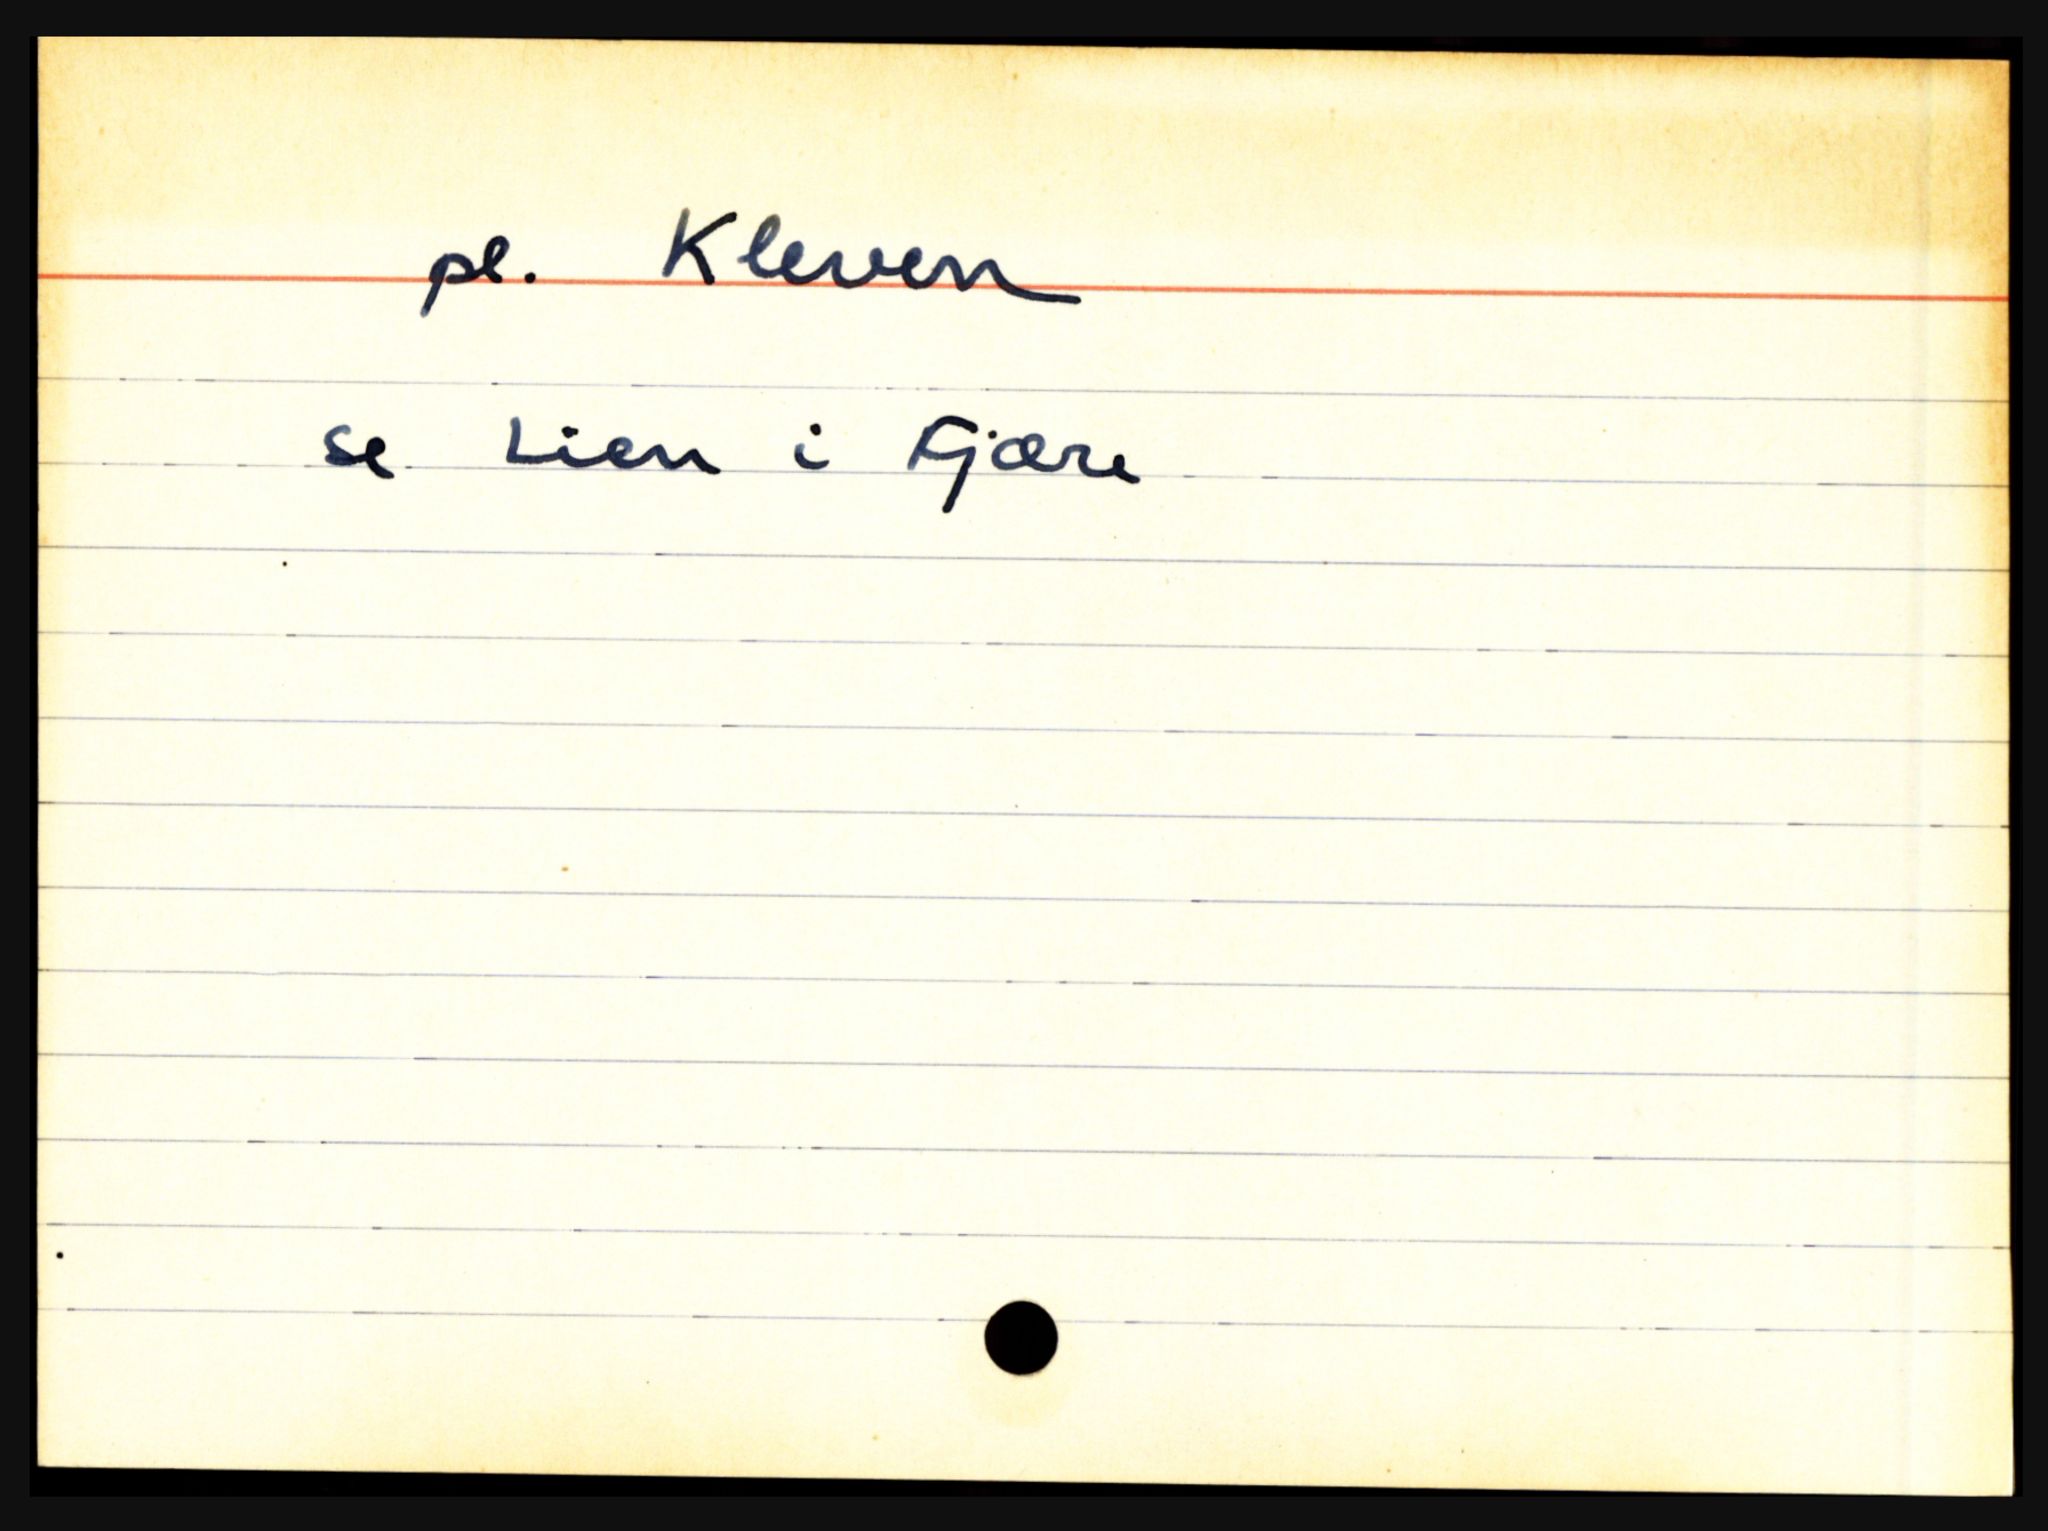 pl. Kleven
se Lien i Fjære